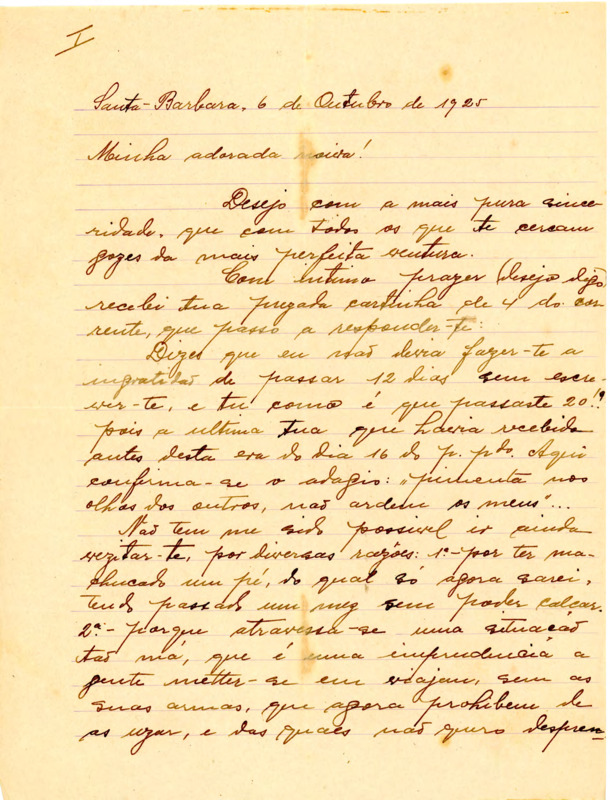 I
Santa-Barbara, 6 de Outubro de 1925
Minha adorada noiva!
Desejo com a mais pura since-
ridade, que com todos os que te cercam
gozes da mais perfeita ventura.
Com intimo prazer (desejo digo)
recebi tua prezada cartinha de 4 do cor-
rente, que passo a responder-te:
Dizes que eu não devia fazer-te a
ingratidão de passar 12 dias sem escre-
ver-te, e tu como é que passaste 20!?
pois a ultima tua que havia recebido
antes desta era do dia 16 do p. pdo. Aqui
confirma-se o adagio: "pimenta nos
olhos dos outros, não ardem os meus"...
Não tem me sido possivel ir ainda
vezitar-te, por diversas razões: 1ª-por ter ma-
chucado um pé, do qual só agora sarei,
tendo passado um mez sem poder calçar.
2ª-porque atravessa-se uma situação
tão má, que é uma imprudencia a
gente metter-se em viajan, sem as
suas armas, que agora prohibem de
as uzar, e das quaes não quero despren-